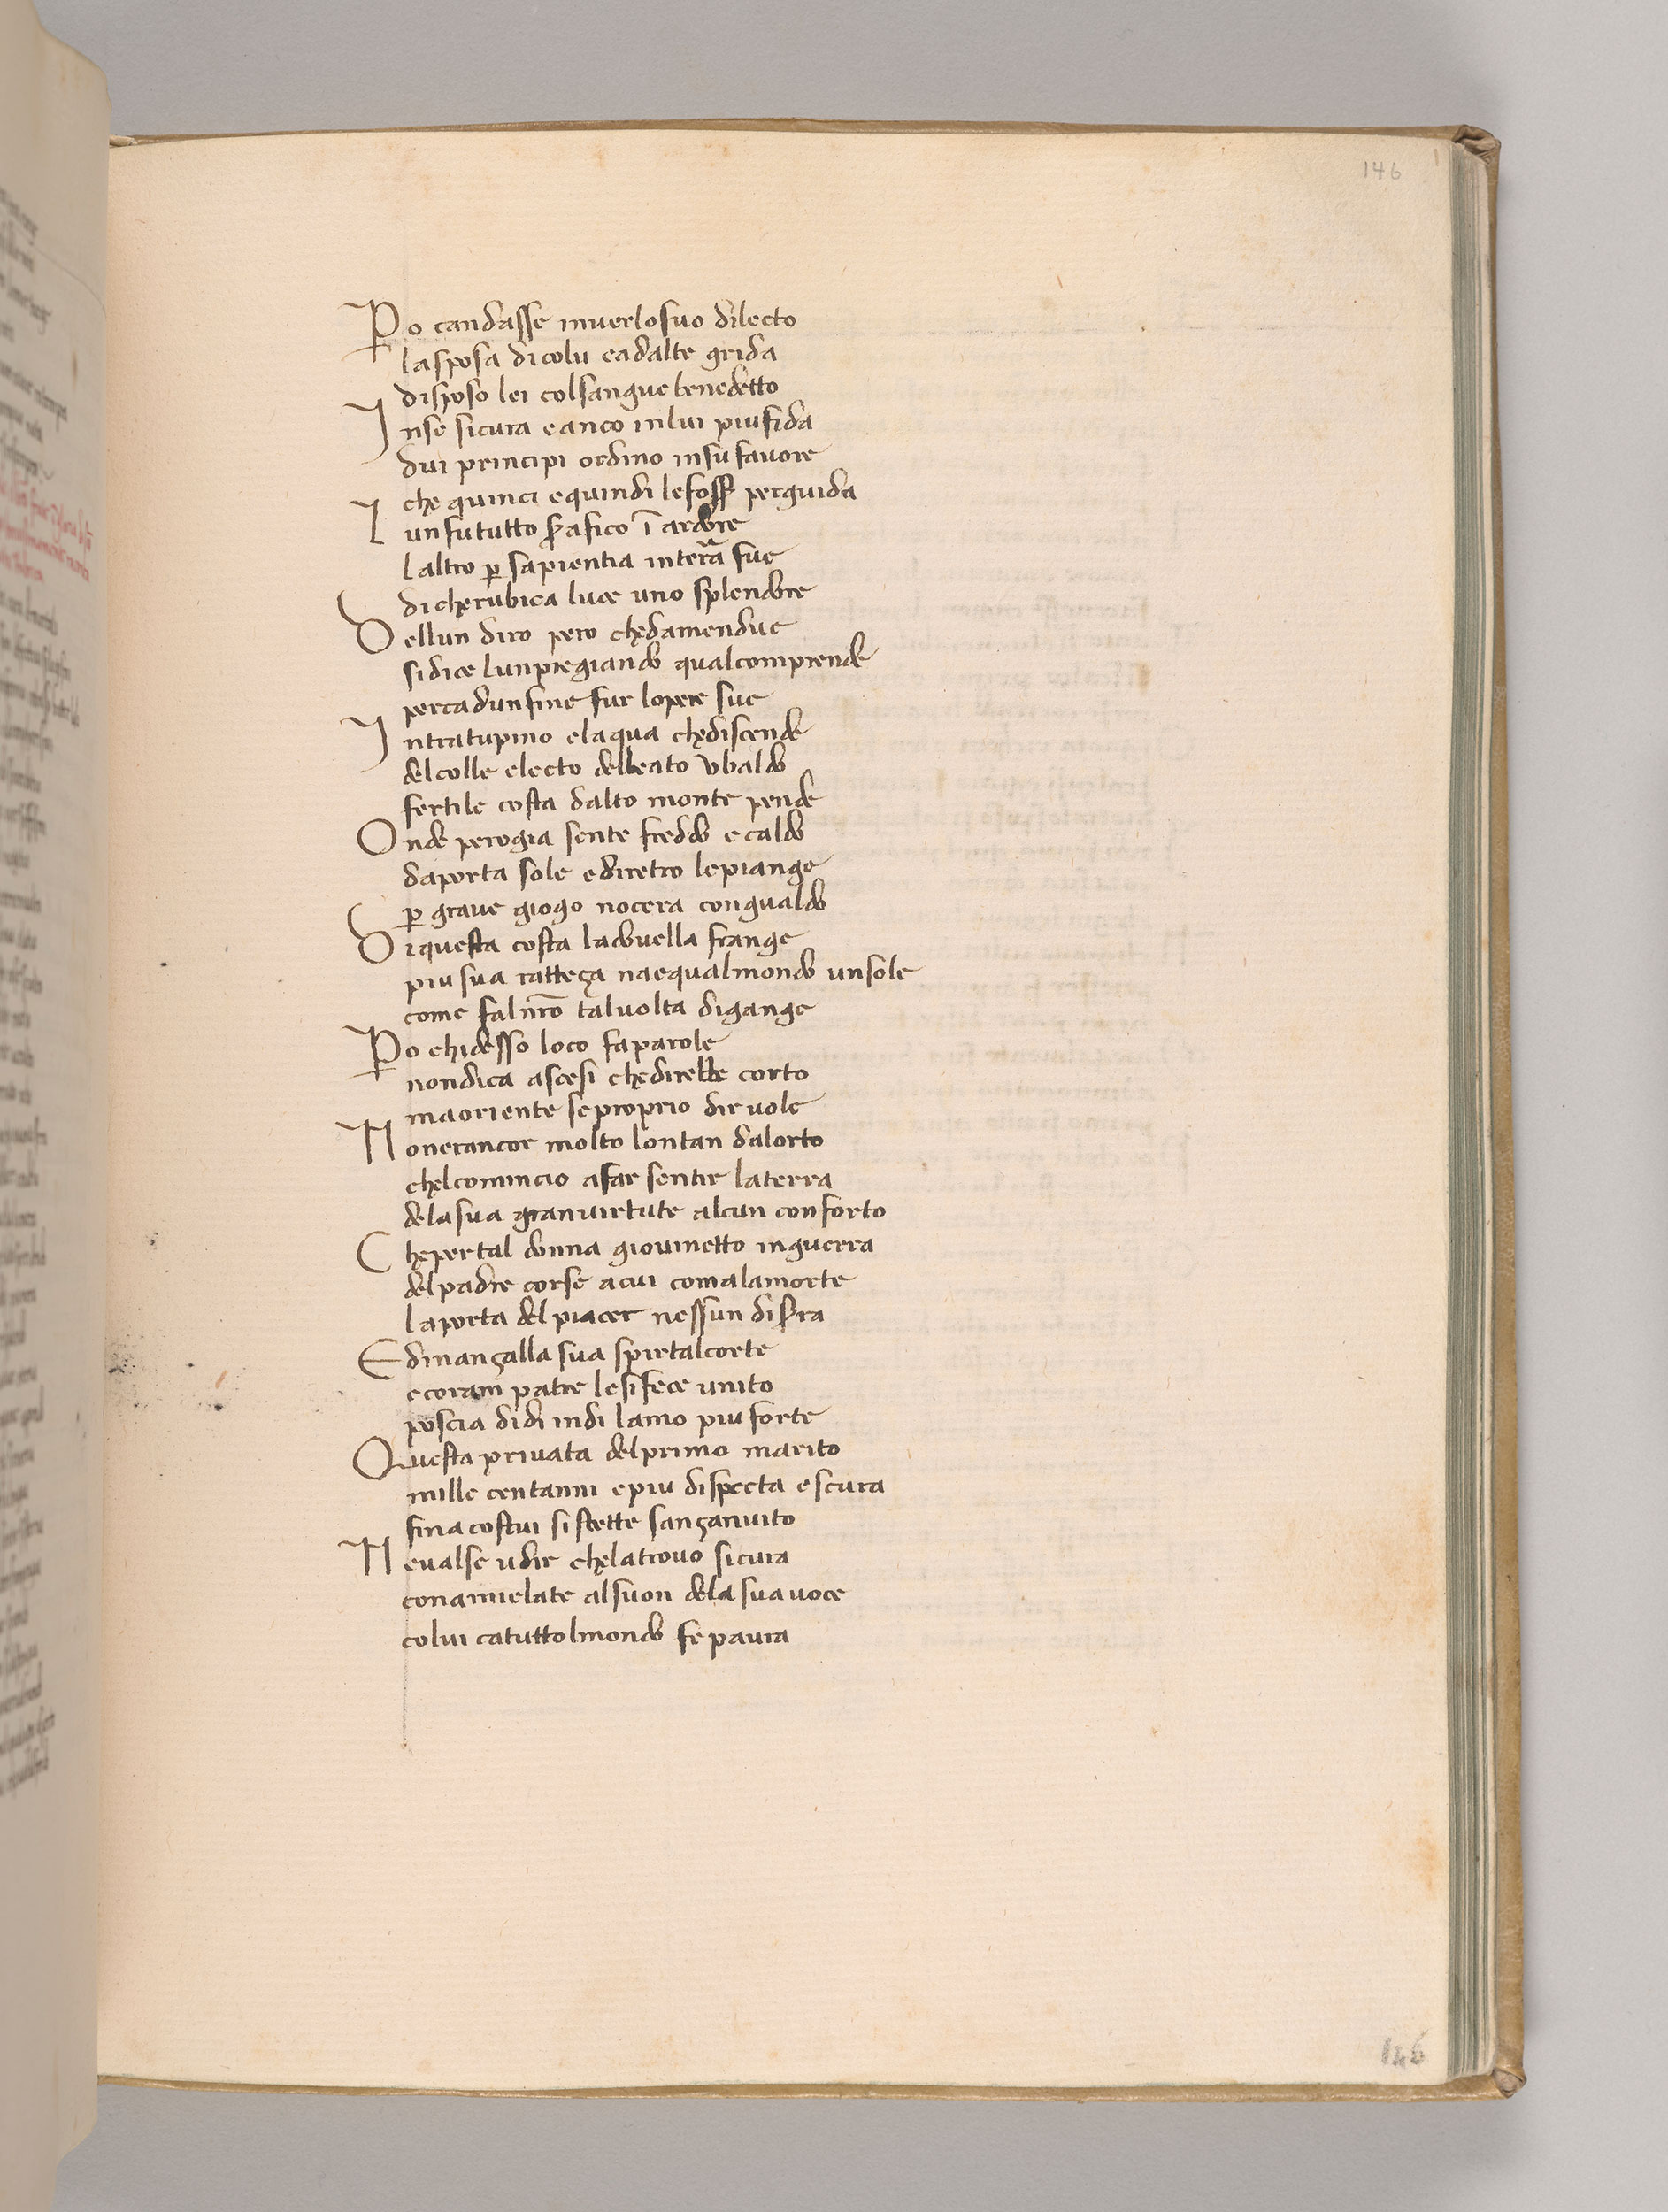 146
Po candasse inverlosuo dilecto
lasposa dicolu cadalte grida
disposo lei colsangue benedetto
Inse sicura eanco inlui piufida
dui principi ordino insu favore
che quinci equindi lefosser perguida
I unfututto serafico ī ardore
laltro ꝑ sapientia interra fue
dicherubica luce uno splendore
Dellun diro pero chedamendue
sidice lunpregiando qualcomprende
percadunfine fur lopere sue
Intratupino elaqua chediscende
delcolle electo delbeato vbaldo
fertile costa dalto monte pende
Onde perogia sente freddo ecaldo
daporta sole ediretro lepiange
ꝑ grave giogo nocera congualdo
Diquesta costa ladovella frange
piusua ratteça naequalmondo unsole
come falnr̄o talvolta digange
Po chidesso loco faparole
nondica ascesi chedirebbe corto
maoriente seproprio dir vole
Nonerancor molto lontan dalorto
chelcomincio afar sentir laterra
delasua granvirtute alcun conforto
Chepertal donna giovinetto inguerra
delpadre corse acui comalamorte
laporta delpiacer nessun diserra
Edinançalla sua spirtalcorte
ecoram patre lesifece unito
poscia didi indi lamo piu forte
Questa privata delprimo marito
mille centanni epiu dispecta escura
finacostui sistette sançanvito
Nevalse udir chelatrovo sicura
conamielate alsuon dela suavoce
colui catuttolmondo fe paura
146